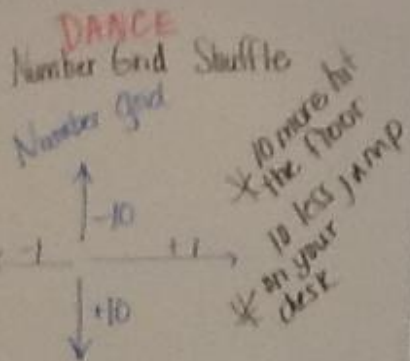 DANCE
Number Grid Shuffle
Number grid
-10
-1
+1
+10
* 10 more hit
the floor
10 less jump
* on your
desk